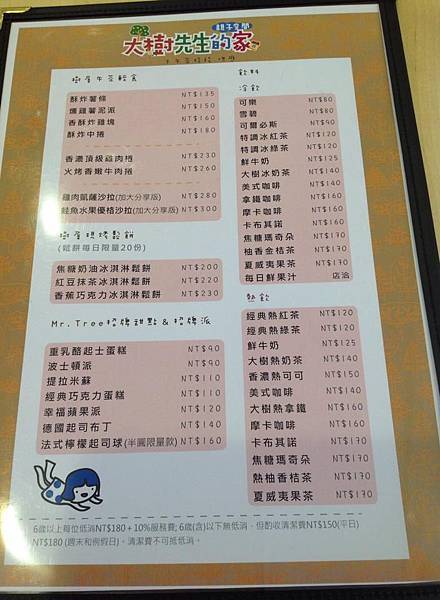 親子空間
大樹先生的家
樹屋午茶輕食
酥炸薯條 NT$135
爆雞薯泥派 NT$150
香酥炸雞塊 NT$160
酥炸中捲 NT$180
香濃頂級雞肉捲 NT$230
火烤香嫩牛肉捲 NT$260
雞肉凱薩沙拉(加大分享版) NT$280
鮭魚水果優格沙拉(加大分享版) NT$300
樹屋現烤鬆餅
(鬆餅每日限量20份)
焦糖奶油冰淇淋鬆餅 NT$200
紅豆抹茶冰淇淋鬆餅 NT$220
香蕉巧克力冰淇淋鬆餅 NT$230
Mr.Tree招牌甜點&招牌派
重乳酪起士蛋糕 NT$90
波士頓派 NT$90
提拉米蘇 NT$110
經典巧克力蛋糕 NT$110
幸福蘋果派 NT$120
德國起司布丁 NT$140
法式檸檬起司球(半圓限量款) NT$160
飲料
冷飲
可樂 NT$80
雪碧 NT$80
可爾必斯 NT$90
特調冰紅茶 NT$120
特調冰綠茶 NT$120
鮮牛奶 NT$125
大樹冰奶茶 NT$140
美式咖啡 NT$140
拿鐵咖啡 NT$160
摩卡咖啡 NT$170
卡布其諾 NT$170
焦糖瑪奇朵 NT$170
柚香金桔茶 NT$170
夏威夷果茶 NT$170
每日鮮果汁 店洽
熱飲
經典熱紅茶 NT$120
經典熱綠茶 NT$120
鮮牛奶 NT$125
大樹熱奶茶 NT$140
香濃熱可可 NT$150
美式咖啡 NT$140
大樹熱拿鐵 NT$160
摩卡咖啡 NT$170
卡布其諾 NT$170
焦糖瑪奇朵 NT$170
熱柚香桔茶 NT$170
夏威夷果茶 NT$170
6歲以上每位低消NT$180+10%服務費; 6歲(含)以下無低消、但酌收清潔費NT$150(平日)
NT$180 (週末和例假日)。清潔費不可抵低消。